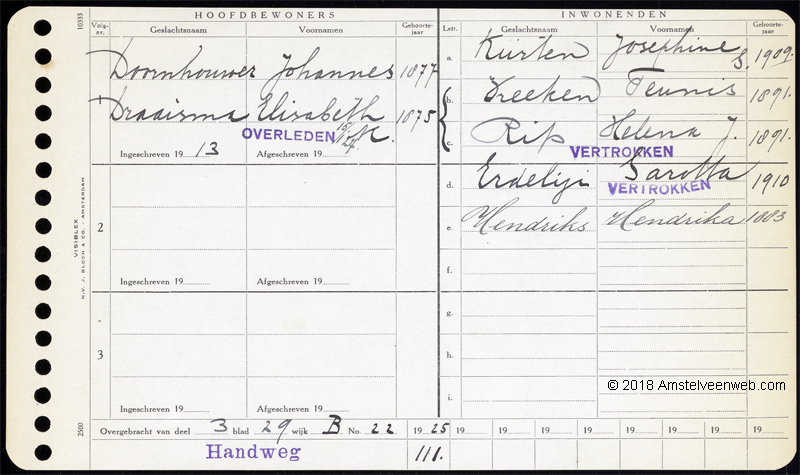 HOOFDBEWONERS
Volg-nr. Geslachtsnaam Voornamen Geboorte-jaar
Doornhouwer Johannes 1877
Draaisma Elisabeth K. 1875
OVERLEDEN
Ingeschreven 19 13 Afgeschreven 19
2
Ingeschreven 19 Afgeschreven 19
3
Ingeschreven 19 Afgeschreven 19
INWONENDEN
Lett. Geslachtsnaam Voornamen Geboorte-jaar
a. Kürsten Josephine S. 1909.
b. Dreeken Teunis 1891.
c. Rip Helena J. 1891.
VERTROKKEN
d. Erdelyi Sarolta 1910
VERTROKKEN
e. Hendriks Hendrika 1883
f.
g.
h.
i.
Overgebracht van deel 3 blad 29 wijk B No. 22 1925 19 19 19 19 19 19 19 19
Handweg 111.
10333
VISIBLEX
N.V. J. BLOCH & CO. - AMSTERDAM
2560
© 2018 Amstelveenweb.com